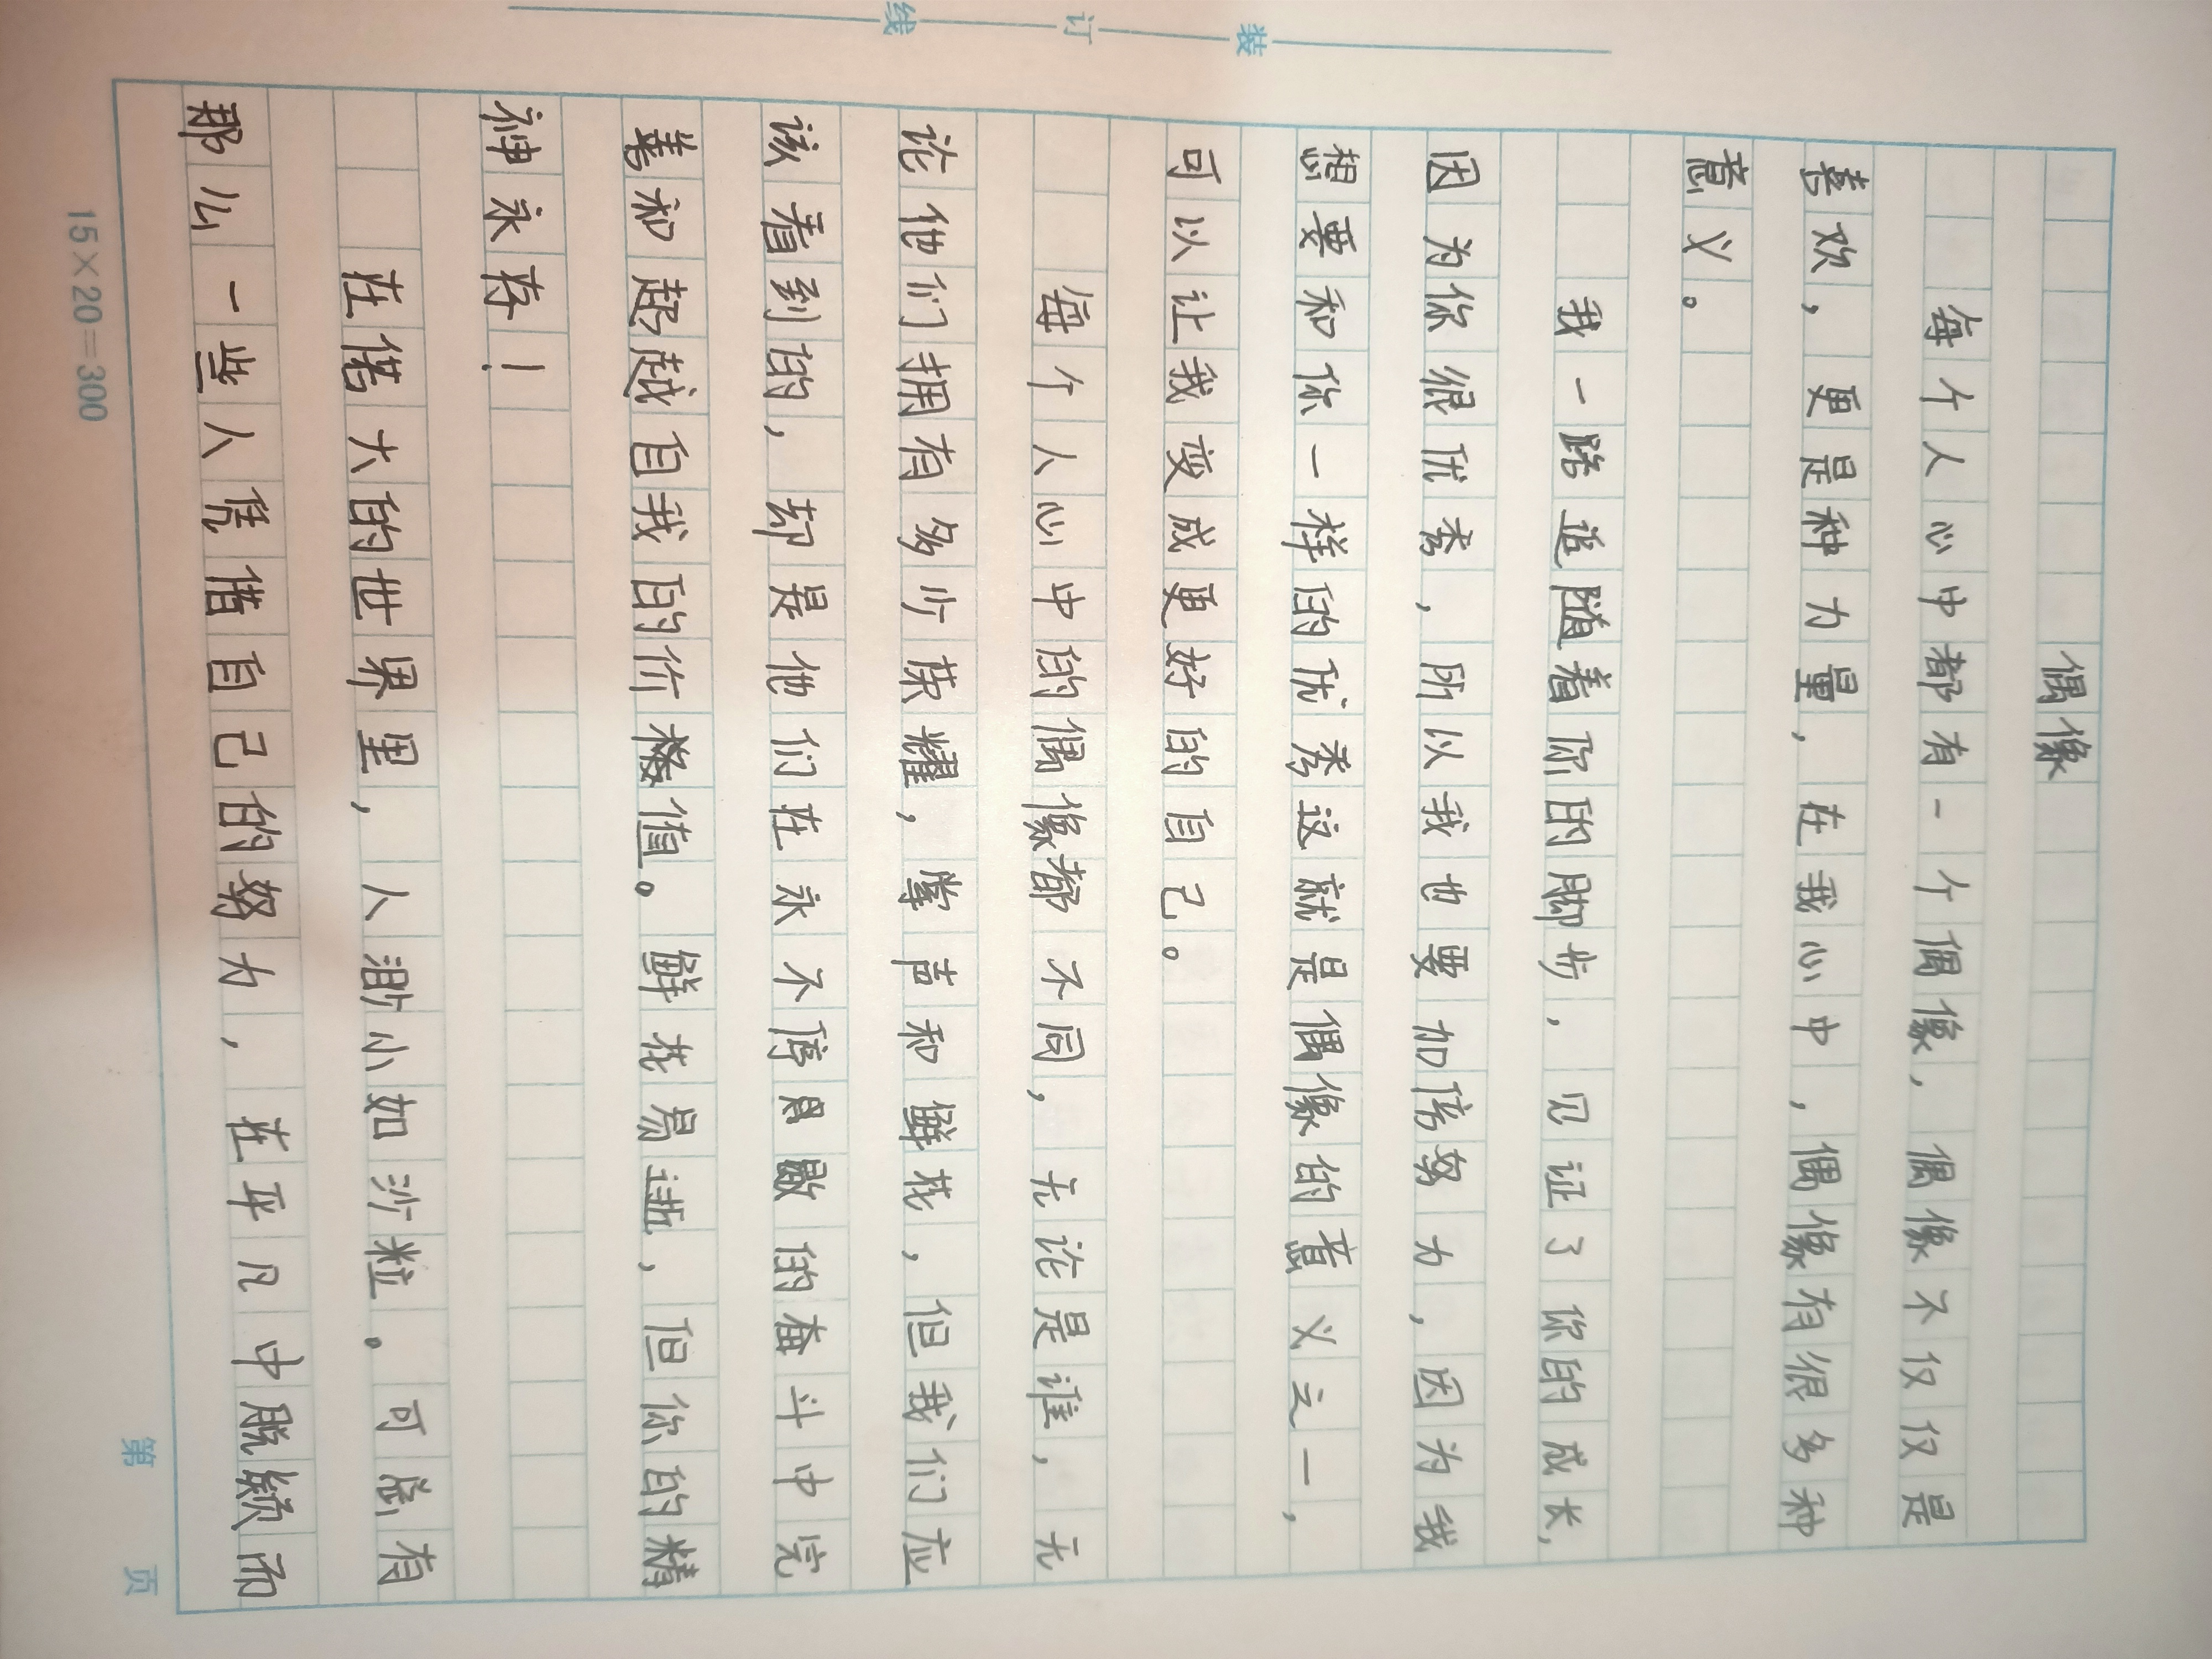 装订线
偶像
每个人心中都有一个偶像，偶像不仅仅是
喜欢，更是种力量，在我心中，偶像有很多种
意义。
我一路追随着你的脚步，见证了你的成长，
因为你很优秀，所以我也要加倍努力，因为我
想要和你一样的优秀这就是偶像的意义之一，
可以让我变成更好的自己。
每个人心中的偶像都不同，无论是谁，无
论他们拥有多少荣耀，掌声和鲜花，但我们应
该看到的，却是他们在永不停歇的奋斗中完
善和超越自我的价值。鲜花易逝，但你的精
神永存！
在偌大的世界里，人渺小如沙粒。可总有
那么一些人凭借自己的努力，在平凡中脱颖而
15×20=300
第 页